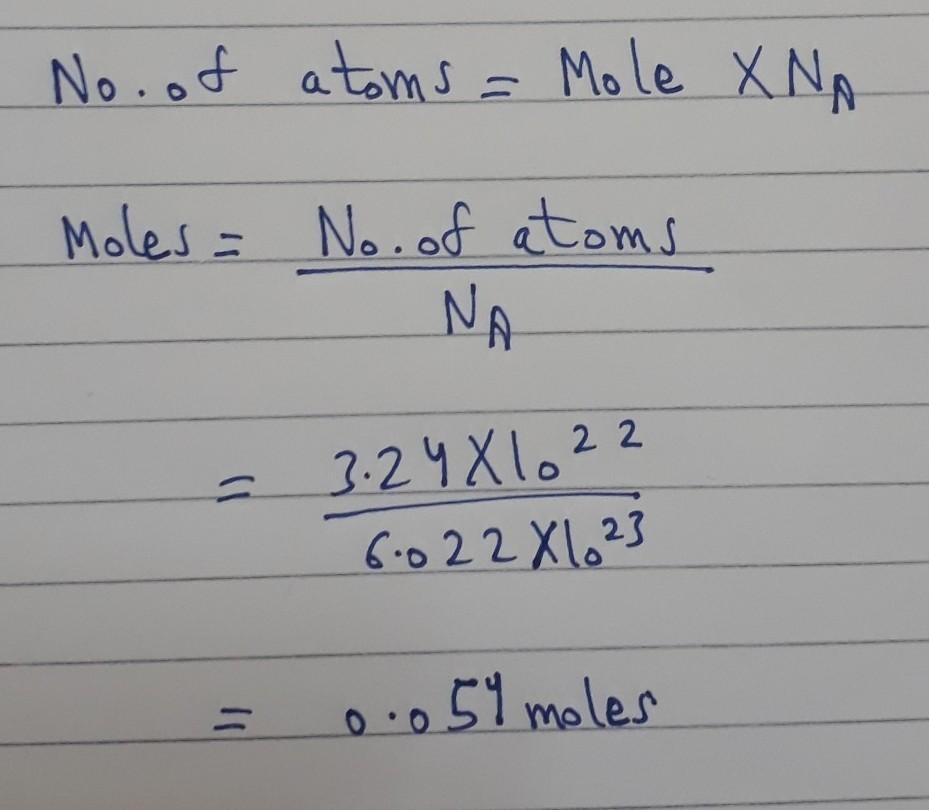 No. of atoms = Mole X N_A
Moles = No. of atoms
N_A
= 3.24 X 10^22
6.022 X 10^23
= 0.054 moles